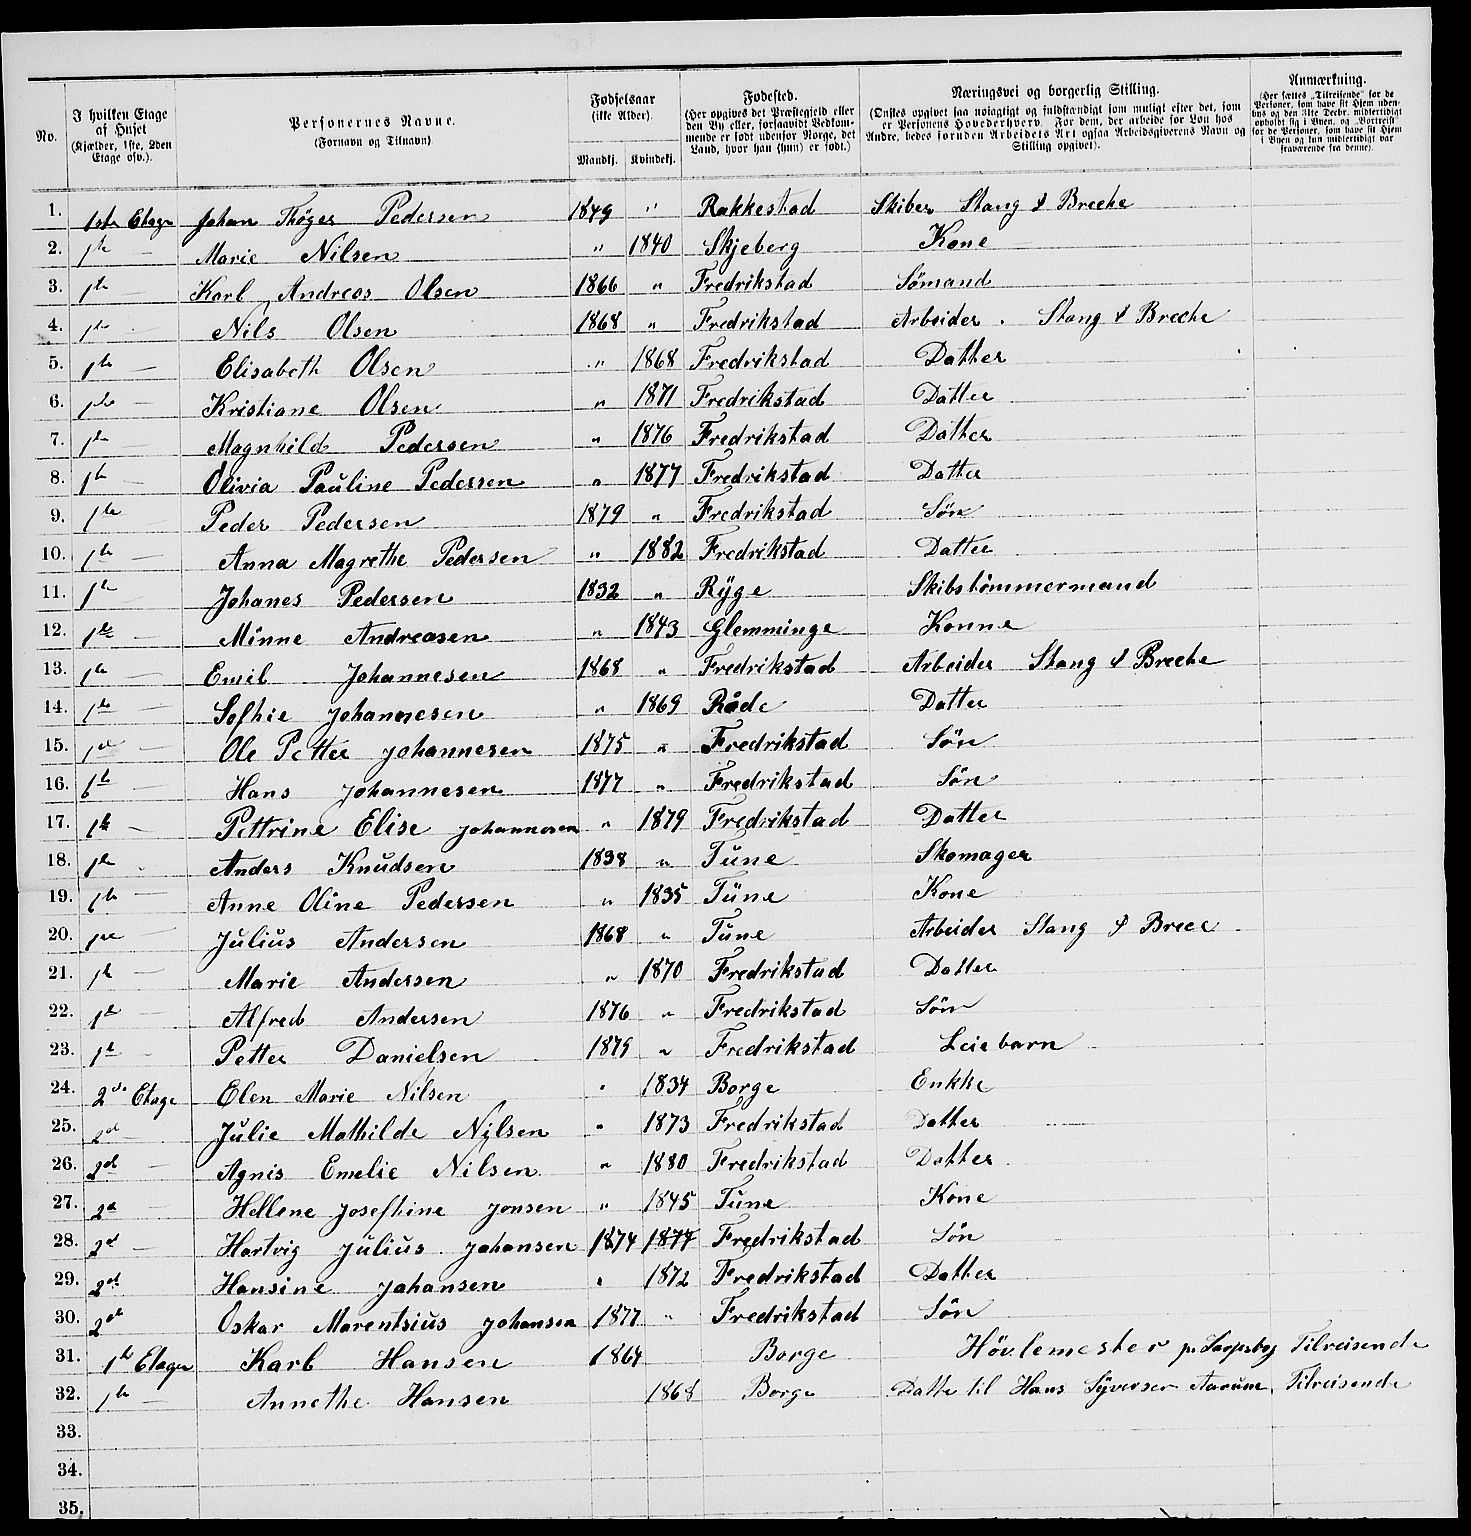 No.
I hvilken Etage af Huset (Kjælder, 1ste, 2den Etage osv.).
Personernes Navne. (Fornavn og Tilnavn)
Fødselsaar (ikke Alder).
Mandkj. Kvindekj.
Fødested. (Her opgives det Præstegjeld eller den By eller, forsaavidt Vedkommende er født udenfor Norge, det Land, hvor han (hun) er født.)
Næringsvei og borgerlig Stilling. (Ønskes opgivet saa nøiagtigt og fuldstændigt som muligt efter det, som er Personens Hovederhverv. For dem, der arbeide for Løn hos Andre, bedes foruden Arbeidets Art ogsaa Arbeidsgiverens Navn og Stilling opgivet).
Anmærkning. (Her sættes „Tilreisende" for de Personer, som have sit Hjem udenbys og den 31te Decbr. midlertidigt opholdt sig i Byen, og „Bortreist" for de Personer, som have sit Hjem i Byen og kun midlertidigt var fraværende fra denne).
1. 1ste Etage Johan Thøger Pedersen 1849 " Rakkestad Skiber Stang & Breche
2. 1te — Marie Nilsen " 1840 Skjeberg Kone
3. 1te — Karl Andreas Olsen 1866 " Fredrikstad Sømand
4. 1te Nils Olsen 1868 " Fredrikstad Arbeider . Stang & Breche
5. 1te — Elisabeth Olsen " 1868 Fredrikstad Datter
6. 1te — Kristiane Olsen " 1871 Fredrikstad Datter
7. 1te — Magnhild Pedersen " 1876 Fredrikstad Datter
8. 1te — Olivia Pauline Pedersen " 1877 Fredrikstad Datter
9. 1te — Peder Pedersen 1879 " Fredrikstad Søn
10. 1te — Anna Magrethe Pedersen " 1882 Fredrikstad Datter
11. 1te — Johanes Pedersen 1832 " Ryge Skibstømmermand
12. 1te — Minne Andreasen " 1843 Glemminge Konne
13. 1te — Emil Johannesen 1868 " Fredrikstad Arbeider Stang & Breche
14. 1te — Sofhie Johannesen " 1869 Råde Datter
15. 1te — Ole Petter Johannesen 1875 " Fredrikstad Søn
16. 1te — Hans Johannesen 1877 " Fredrikstad Søn
17. 1te — Pettrine Elise Johannesen " 1879 Fredrikstad Datter
18. 1te Anders Knudsen 1838 " Tune Skomager
19. 1te — Anne Oline Pedersen " 1835 Tune Kone
20. 1te — Julius Andersen 1868 " Tune Arbeider Stang & Brece
21. 1te — Marie Andersen " 1870 Fredrikstad Datter
22. 1te — Alfred Andersen 1876 " Fredrikstad Søn
23. 1te — Petter Danielsen 1879 " Fredrikstad Leiebarn
24. 2de Etage Elen Marie Nilsen " 1834 Borge Enkke
25. 2d — Julie Mathilde Nilsen " 1873 Fredrikstad Datter
26. 2d — Agnis Emelie Nilsen " 1880 Fredrikstad Datter
27. 2d — Hellene Josefhine Jonsen " 1845 Tune Kone
28. 2d — Hartvig Julius Johansen 1874 1877 Fredrikstad Søn
29. 2d Hansine Johansen " 1872 Fredrikstad Datter
30. 2d Oskar Marentsius Johansen 1877 " Fredrikstad Søn
31. 1te Etager Karl Hansen 1864 Borge Hövlemester Tilreisende
32. 1te — Annethe Hansen 1868 Borge Datte til Hans Tilreisende
33.
34.
35.